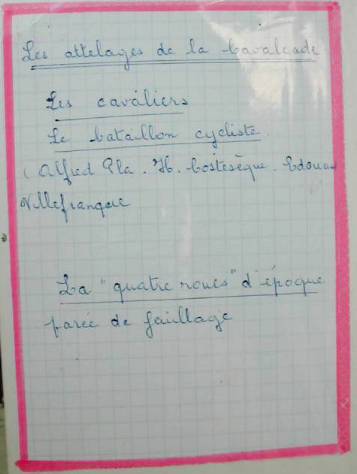 Les attelages de la cavalcade
Les cavaliers
Le bataillon cycliste
(Alfred Pla. H. Costesèque. Edouard
Villefranque
La "quatre roues" d'époque
parée de faillage